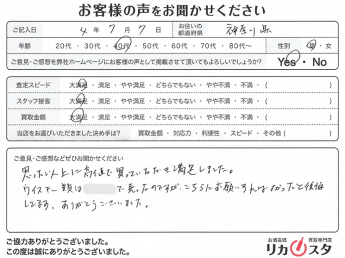 お客様の声をお聞かせください
ご記入日 4年 7月 7日 お住いの都道府県 神奈川県
年齢 20代・30代・40代・50代・60代・70代・80代〜 性別 男・女
ご意見・ご感想を弊社ホームページにお客様の声として掲載させて頂いてもよろしいでしょうか? Yes・No
査定スピード 大満足・満足・やや満足・どちらでもない・やや不満・不満・( )
スタッフ接客 大満足・満足・やや満足・どちらでもない・やや不満・不満・( )
買取金額 大満足・満足・やや満足・どちらでもない・やや不満・不満・( )
当店をお選びいただきました決め手は? 買取金額・対応力・利便性・スピード・その他( )
ご意見・ご感想などぜひお聞かせください
思った以上に高値で買っていただき満足しました。
ウイスキー類は で売ったのですが、こちらにお願いすればよかったと後悔
してます。ありがとうございました。
ご協力ありがとうございました。
この度は誠にありがとうございました。
お酒高価 買取専門店
リカスタ